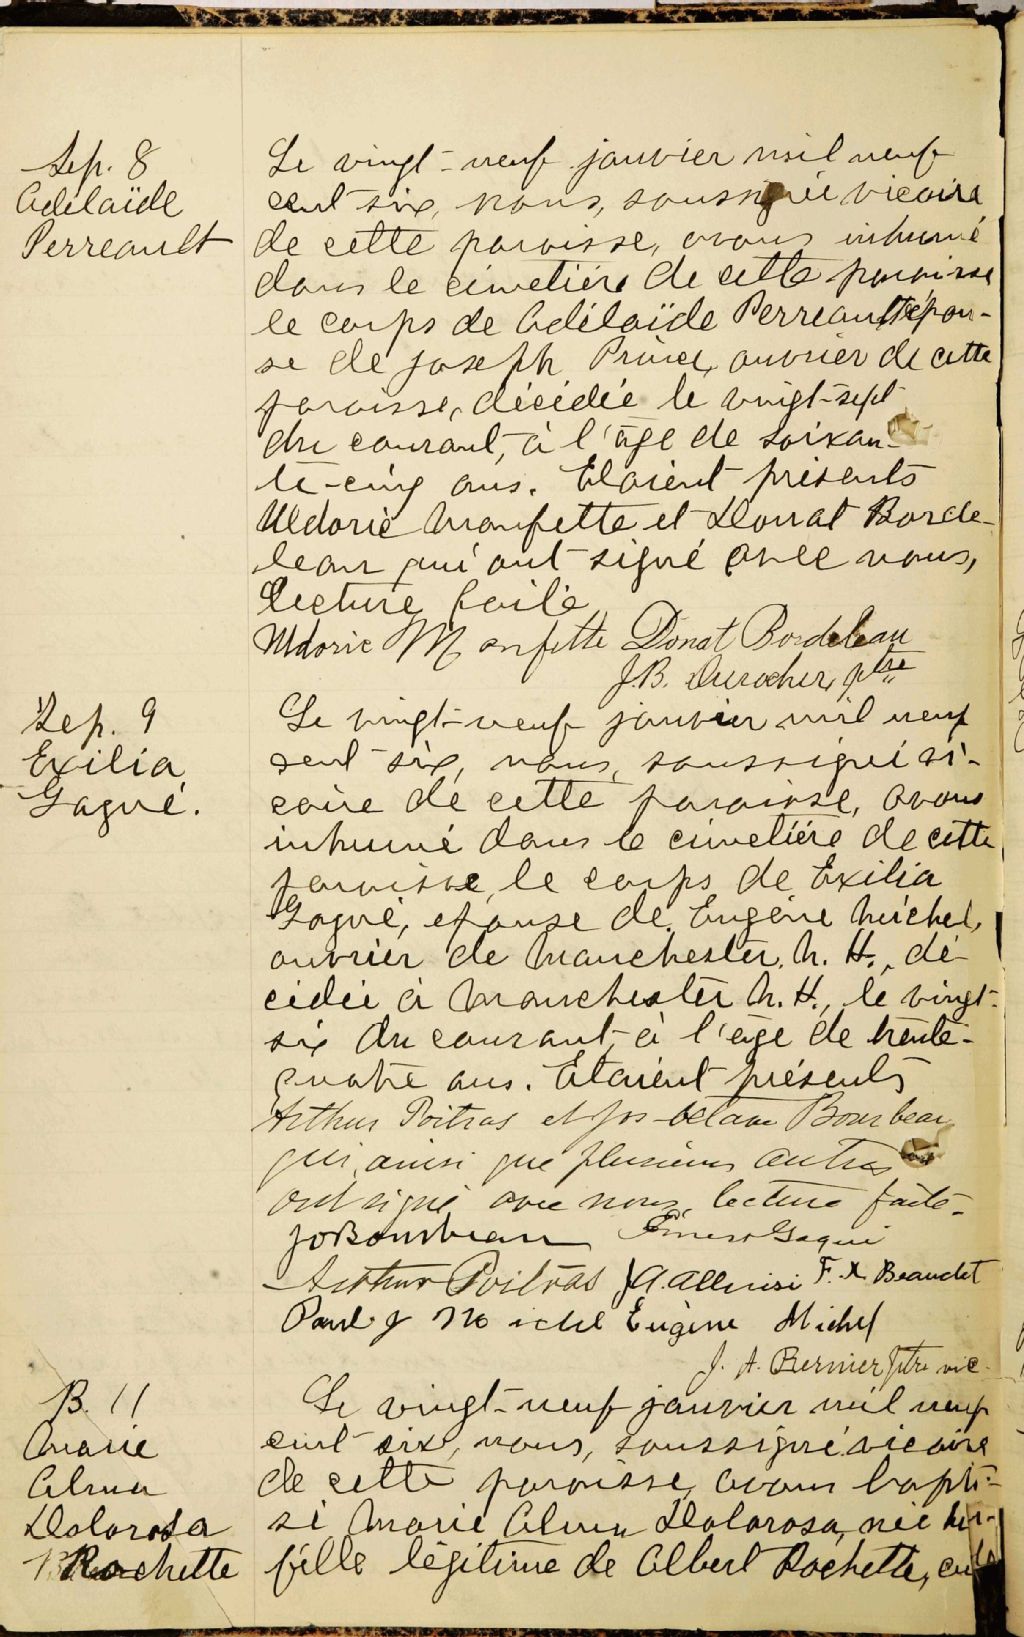 Sep. 8
Adélaïde
Perreault
Le vingt-neuf janvier mil neuf
cent six, nous, soussigné vicaire
de cette paroisse, avons inhumé
dans le cimetière de cette paroisse
le corps de Adélaïde Perreault épou-
se de Joseph Prince, ouvrier de cette
paroisse, décédée le vingt-sept
du courant, à l'âge de soixan-
te-cinq ans. Etaient présents
Uldoric Monfette et Donat Borde-
leau qui ont signé avec nous,
lecture faite,
Uldoric Monfette Donat Bordeleau
J.B. Durocher, ptre
Sep. 9
Exilia
Gagné.
Le vingt-neuf janvier mil neuf
cent six, nous, soussigné vi-
caire de cette paroisse, avons
inhumé dans le cimetière de cette
paroisse, le corps de Exilia
Gagné, epouse de Eugène Michel,
ouvrier de Manchester, N. H., dé-
cédée à Manchester N. H., le vingt-
six du courant, à l'âge de trente-
quatre ans. Etaient présents
Arthur Poitras et Jos-Octave Bourbeau
qui, ainsi que plusieurs autres
ont signé avec nous, lecture faite-
JO Bourbeau Ernest Gagné
Arthur Poitras J.A. F. X Beaudet
Paul J Michel Eugène Michel
J. A. Bernier Ptre vic-
B. 11
Marie
Alma
Dolorosa
Rochette
Le vingt-neuf janvier mil neuf
cent six, nous, soussigné vicaire
de cette paroisse, avons bapti-
sé Marie Alma Dolorosa, née hier
fille légitime de Albert Rochette, cul